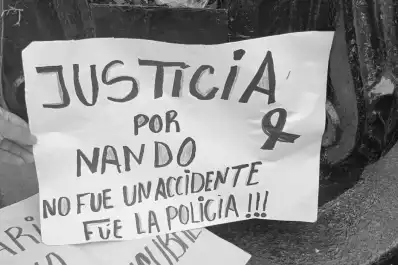 JUSTICIA
POR
NANDO
NO FUE UN ACCIDENTE
FUE LA POLICIA !!!